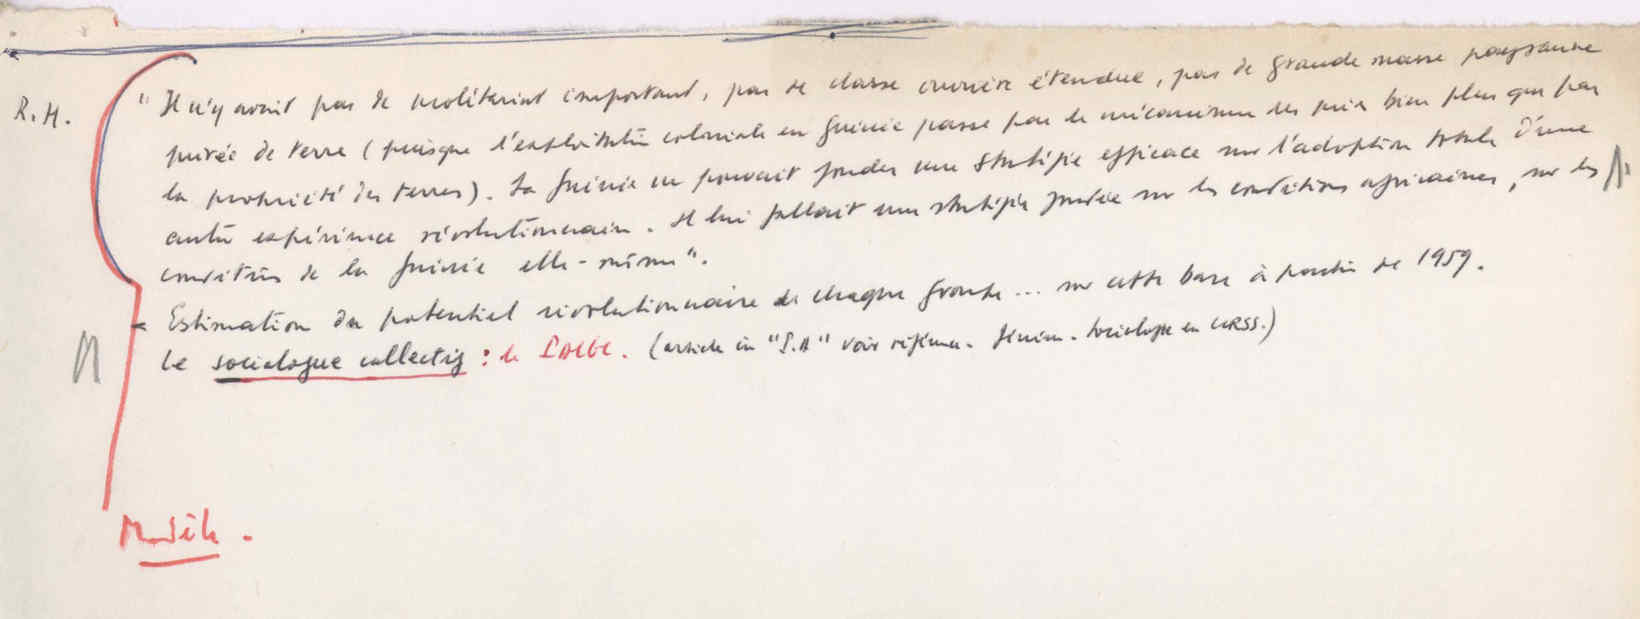 R.H.
" Il n'y avait pas de prolétariat important, pas de classe ouvrière étendue, pas de grande masse paysanne
privée de terre (puisque l'exploitation coloniale en Guinée passe par le mécanisme des prix bien plus que par
la propriété des terres). La Guinée ne pouvait fonder une stratégie efficace sur l'adoption totale d'une
autre expérience révolutionnaire. Il lui fallait une stratégie fondée sur les conditions africaines, sur les
conditions de la Guinée elle-même".
- Estimation du potentiel révolutionnaire de chaque groupe ... sur cette base à partir de 1959.
Le sociologue collectif : le PAIGC. (article in "J.A" voir. Sociologie en URSS.)
Modèle.